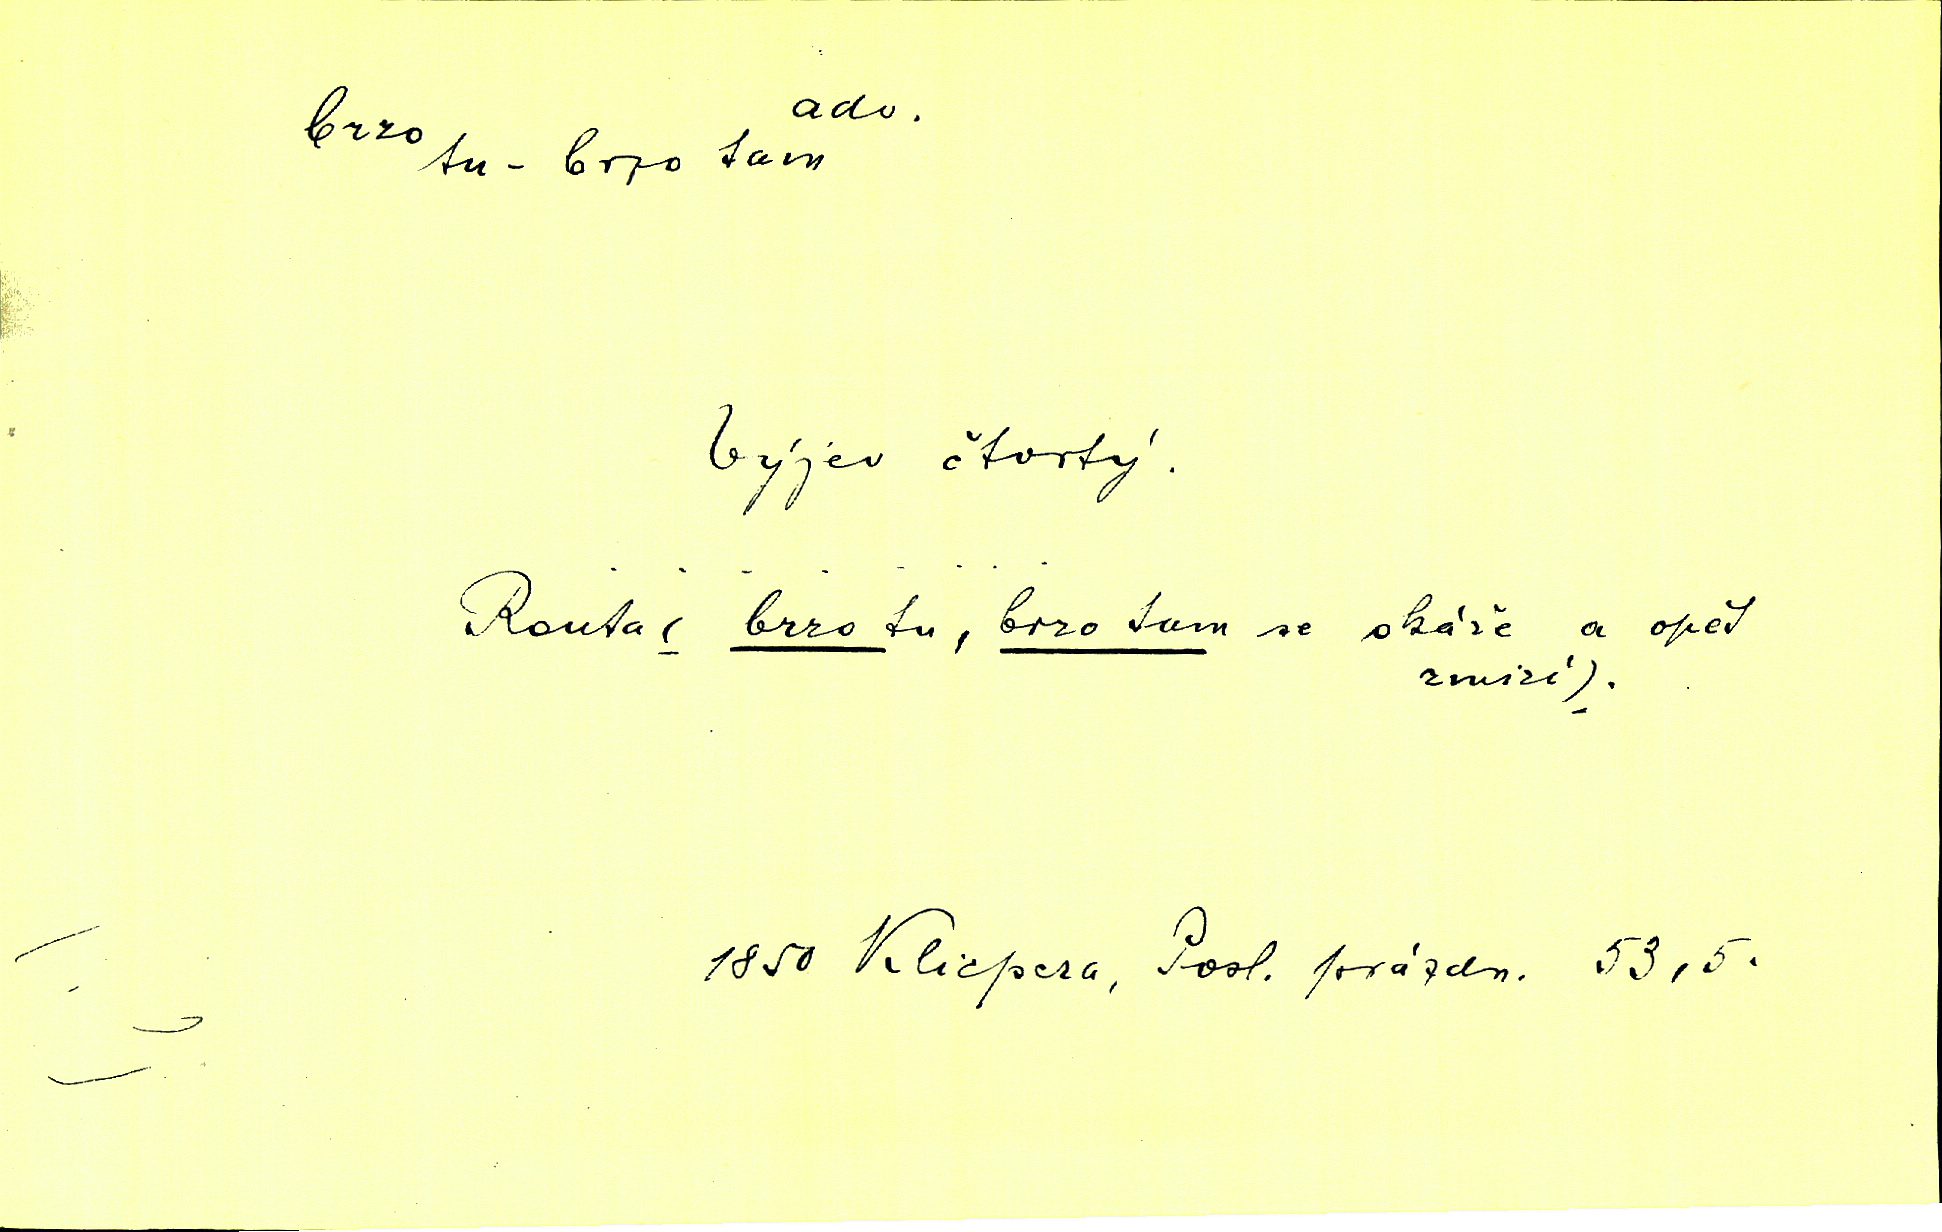 brzo adv.
tu - brzo tam
Výjev čtvrtý.
. . . . . . . .
Routa( brzo tu, brzo tam se okáže a opět
zmizí).
1850 Klicpera, Posl. prázdn. 53,5.